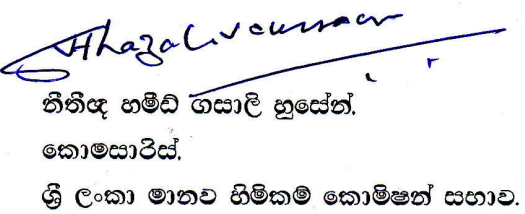 නීතීඥ හමීඩ් ගසාලි හුසේන්,
කොමසාරිස්,
ශ්‍රී ලංකා මානව හිමිකම් කොමිෂන් සභාව.